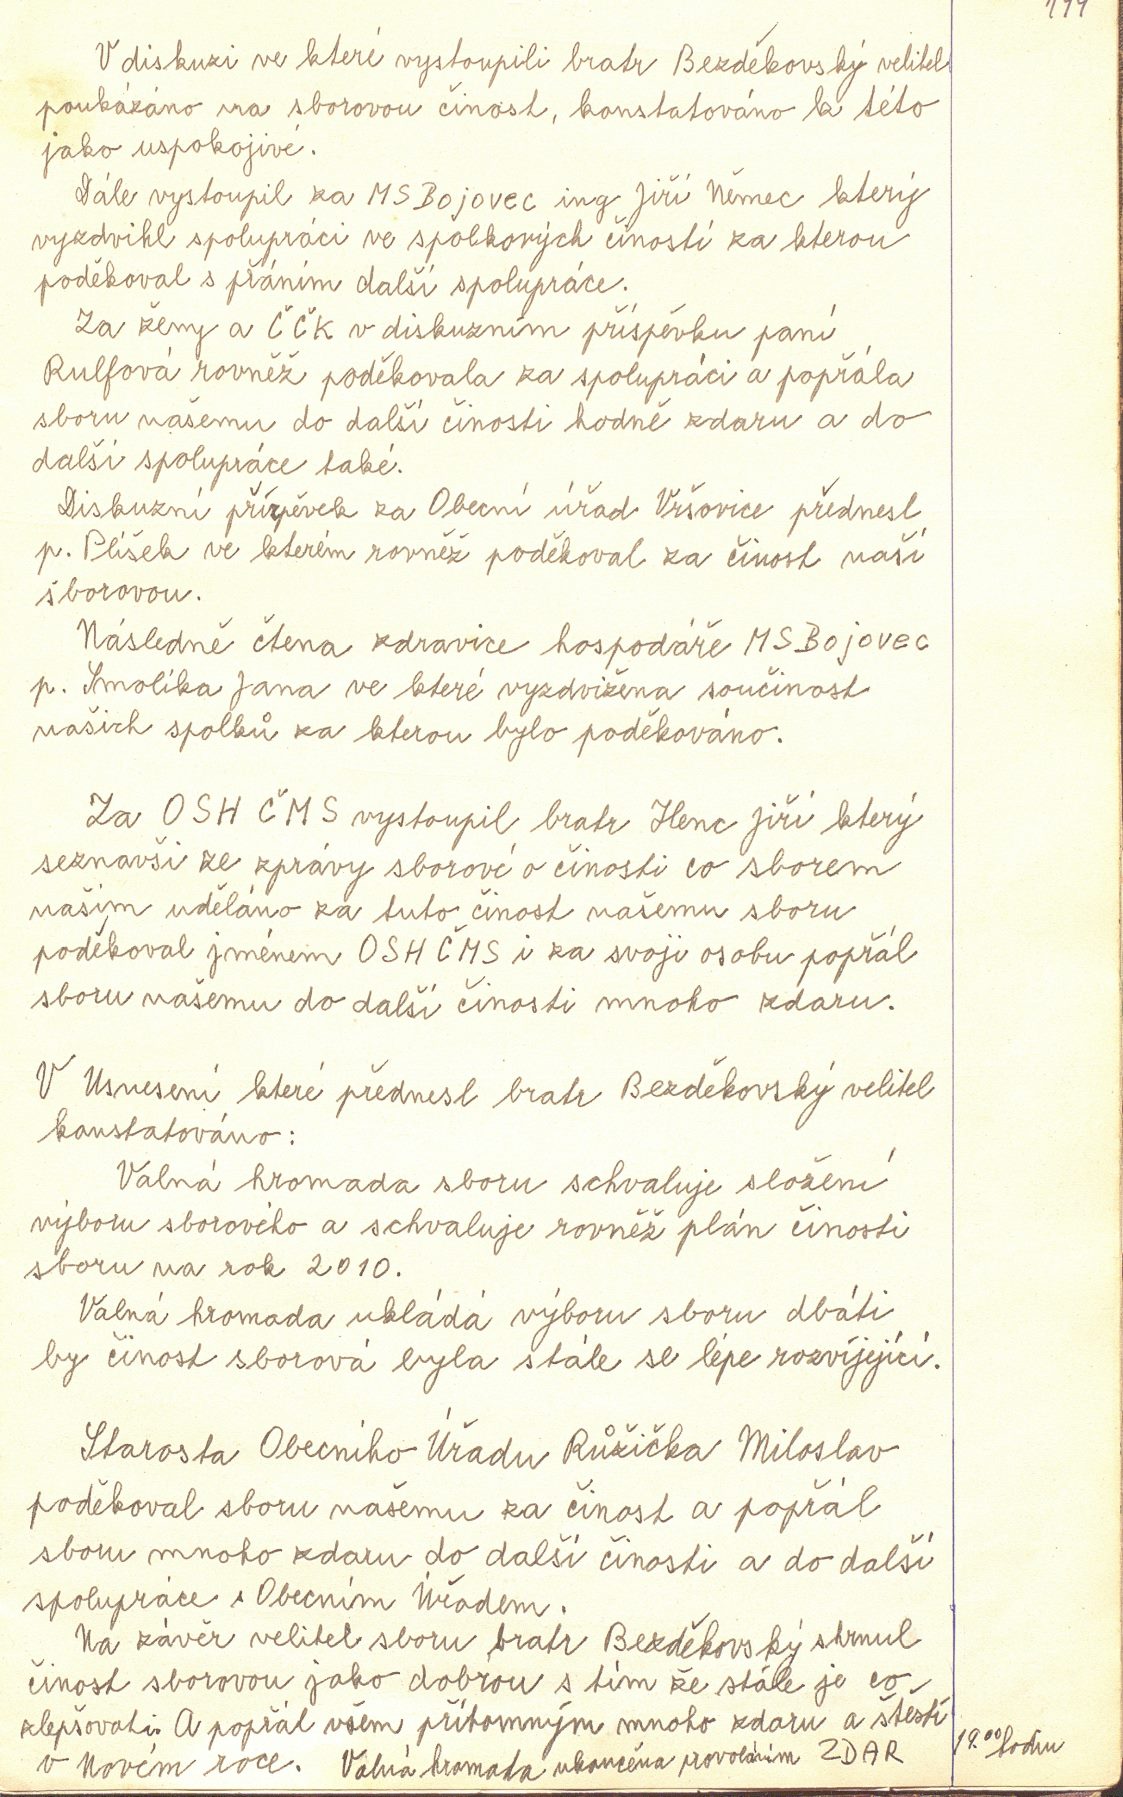 V diskuzi ve které vystoupili bratr Bezděkovský velitel
poukázáno na sborovou činost, konstatováno k této
jako uspokojivé.
Dále vystoupil za MS Bojovec ing Jiří Němec který
vyzdvihl spolupráci ve spolkových čiností za kterou
poděkoval s přáním další spolupráce.
Za ženy a ČČK v diskuzním příspěvku paní
Rulfová rovněž poděkovala za spolupráci a popřála
sboru našemu do další činosti hodně zdaru a do
další spolupráce také.
Diskuzní příspěvek za Obecní úřad Vršovice přednesl
p. Plíšek ve kterém rovněž poděkoval za činost naší
sborovou.
Následně čtena zdravice hospodáře MS Bojovec
p. Smolíka Jana ve které vyzdvižena součinost
našich spolků za kterou bylo poděkováno.
Za OSH ČMS vystoupil bratr Henc Jiří který
seznavši ze zprávy sborové o činosti co sborem
naším uděláno za tuto činost našemu sboru
poděkoval jménem OSH ČMS i za svoji osobu popřál
sboru našemu do další činosti mnoho zdaru.
V Usnesení které přednesl bratr Bezděkovský velitel
konstatováno:
Valná hromada sboru schvaluje složení
výboru sborového a schvaluje rovněž plán činosti
sboru na rok 2010.
Valná hromada ukládá výboru sboru dbáti
by činost sborová byla stále se lépe rozvíjející.
Starosta Obecního Úřadu Růžička Miloslav
poděkoval sboru našemu za činost a popřál
sboru mnoho zdaru do další činosti a do další
spolupráce s Obecním Úřadem.
Na závěr velitel sboru bratr Bezděkovský shrnul
činost sborovou jako dobrou s tím že stále je co
zlepšovati. A popřál všem přítomným mnoho zdaru a štěstí
v Novém roce. Valná hromada ukončena provoláním ZDAR
19.00 hodin